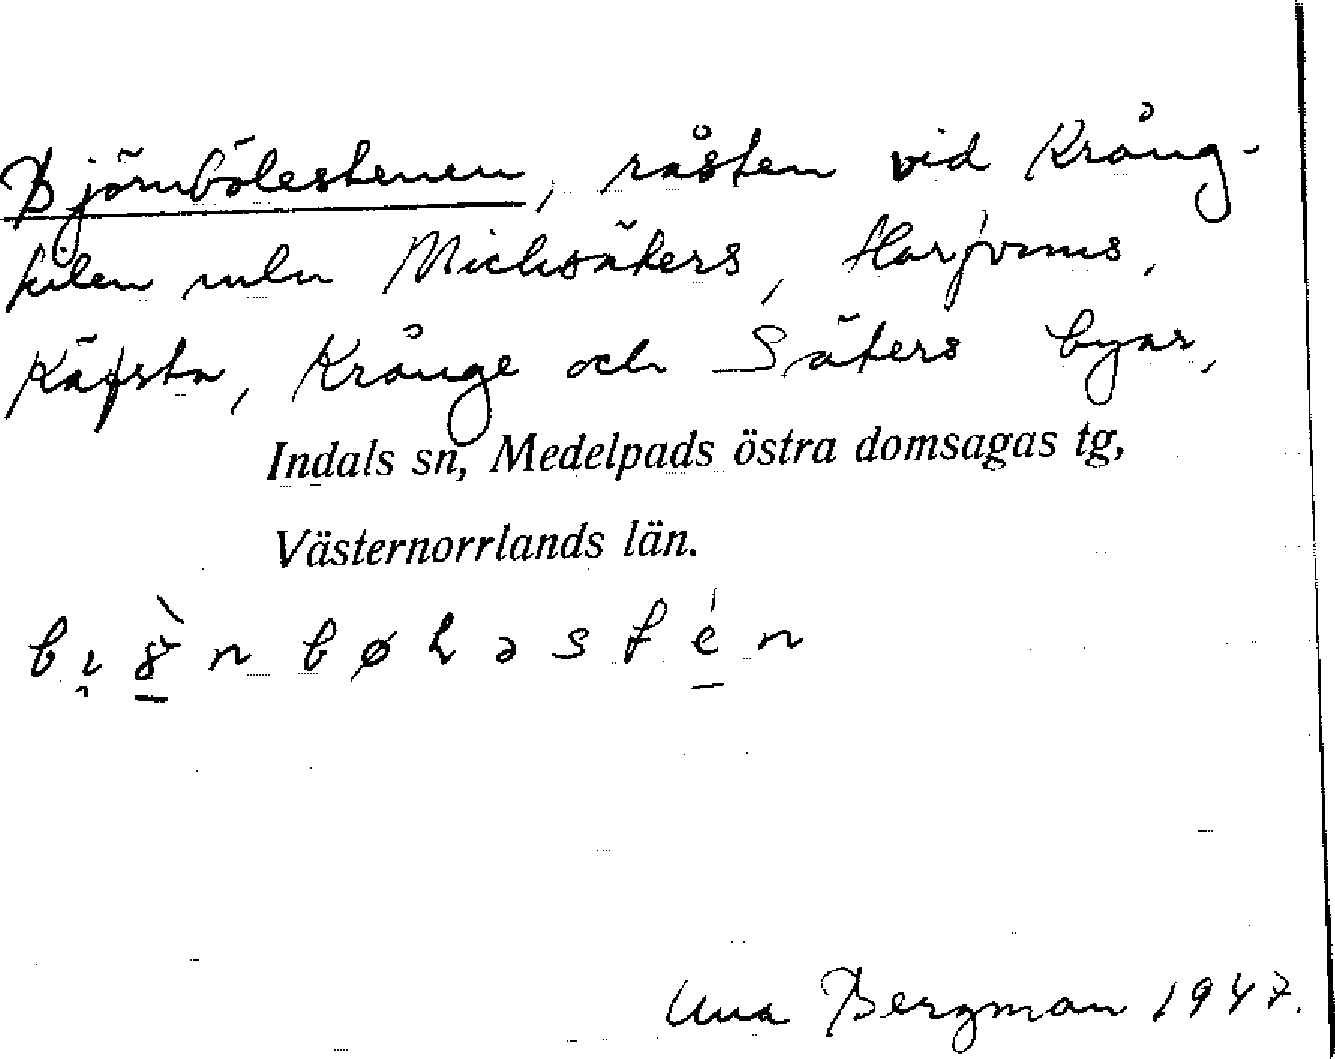 Björnbölestenen, råsten vid Krång-
kilen mln Michsäkers,
Käfsta, Krånge och Säters byar,
Indals sn, Medelpads östra domsagas tg,
Västernorrlands län.
Una Bergman 1947.